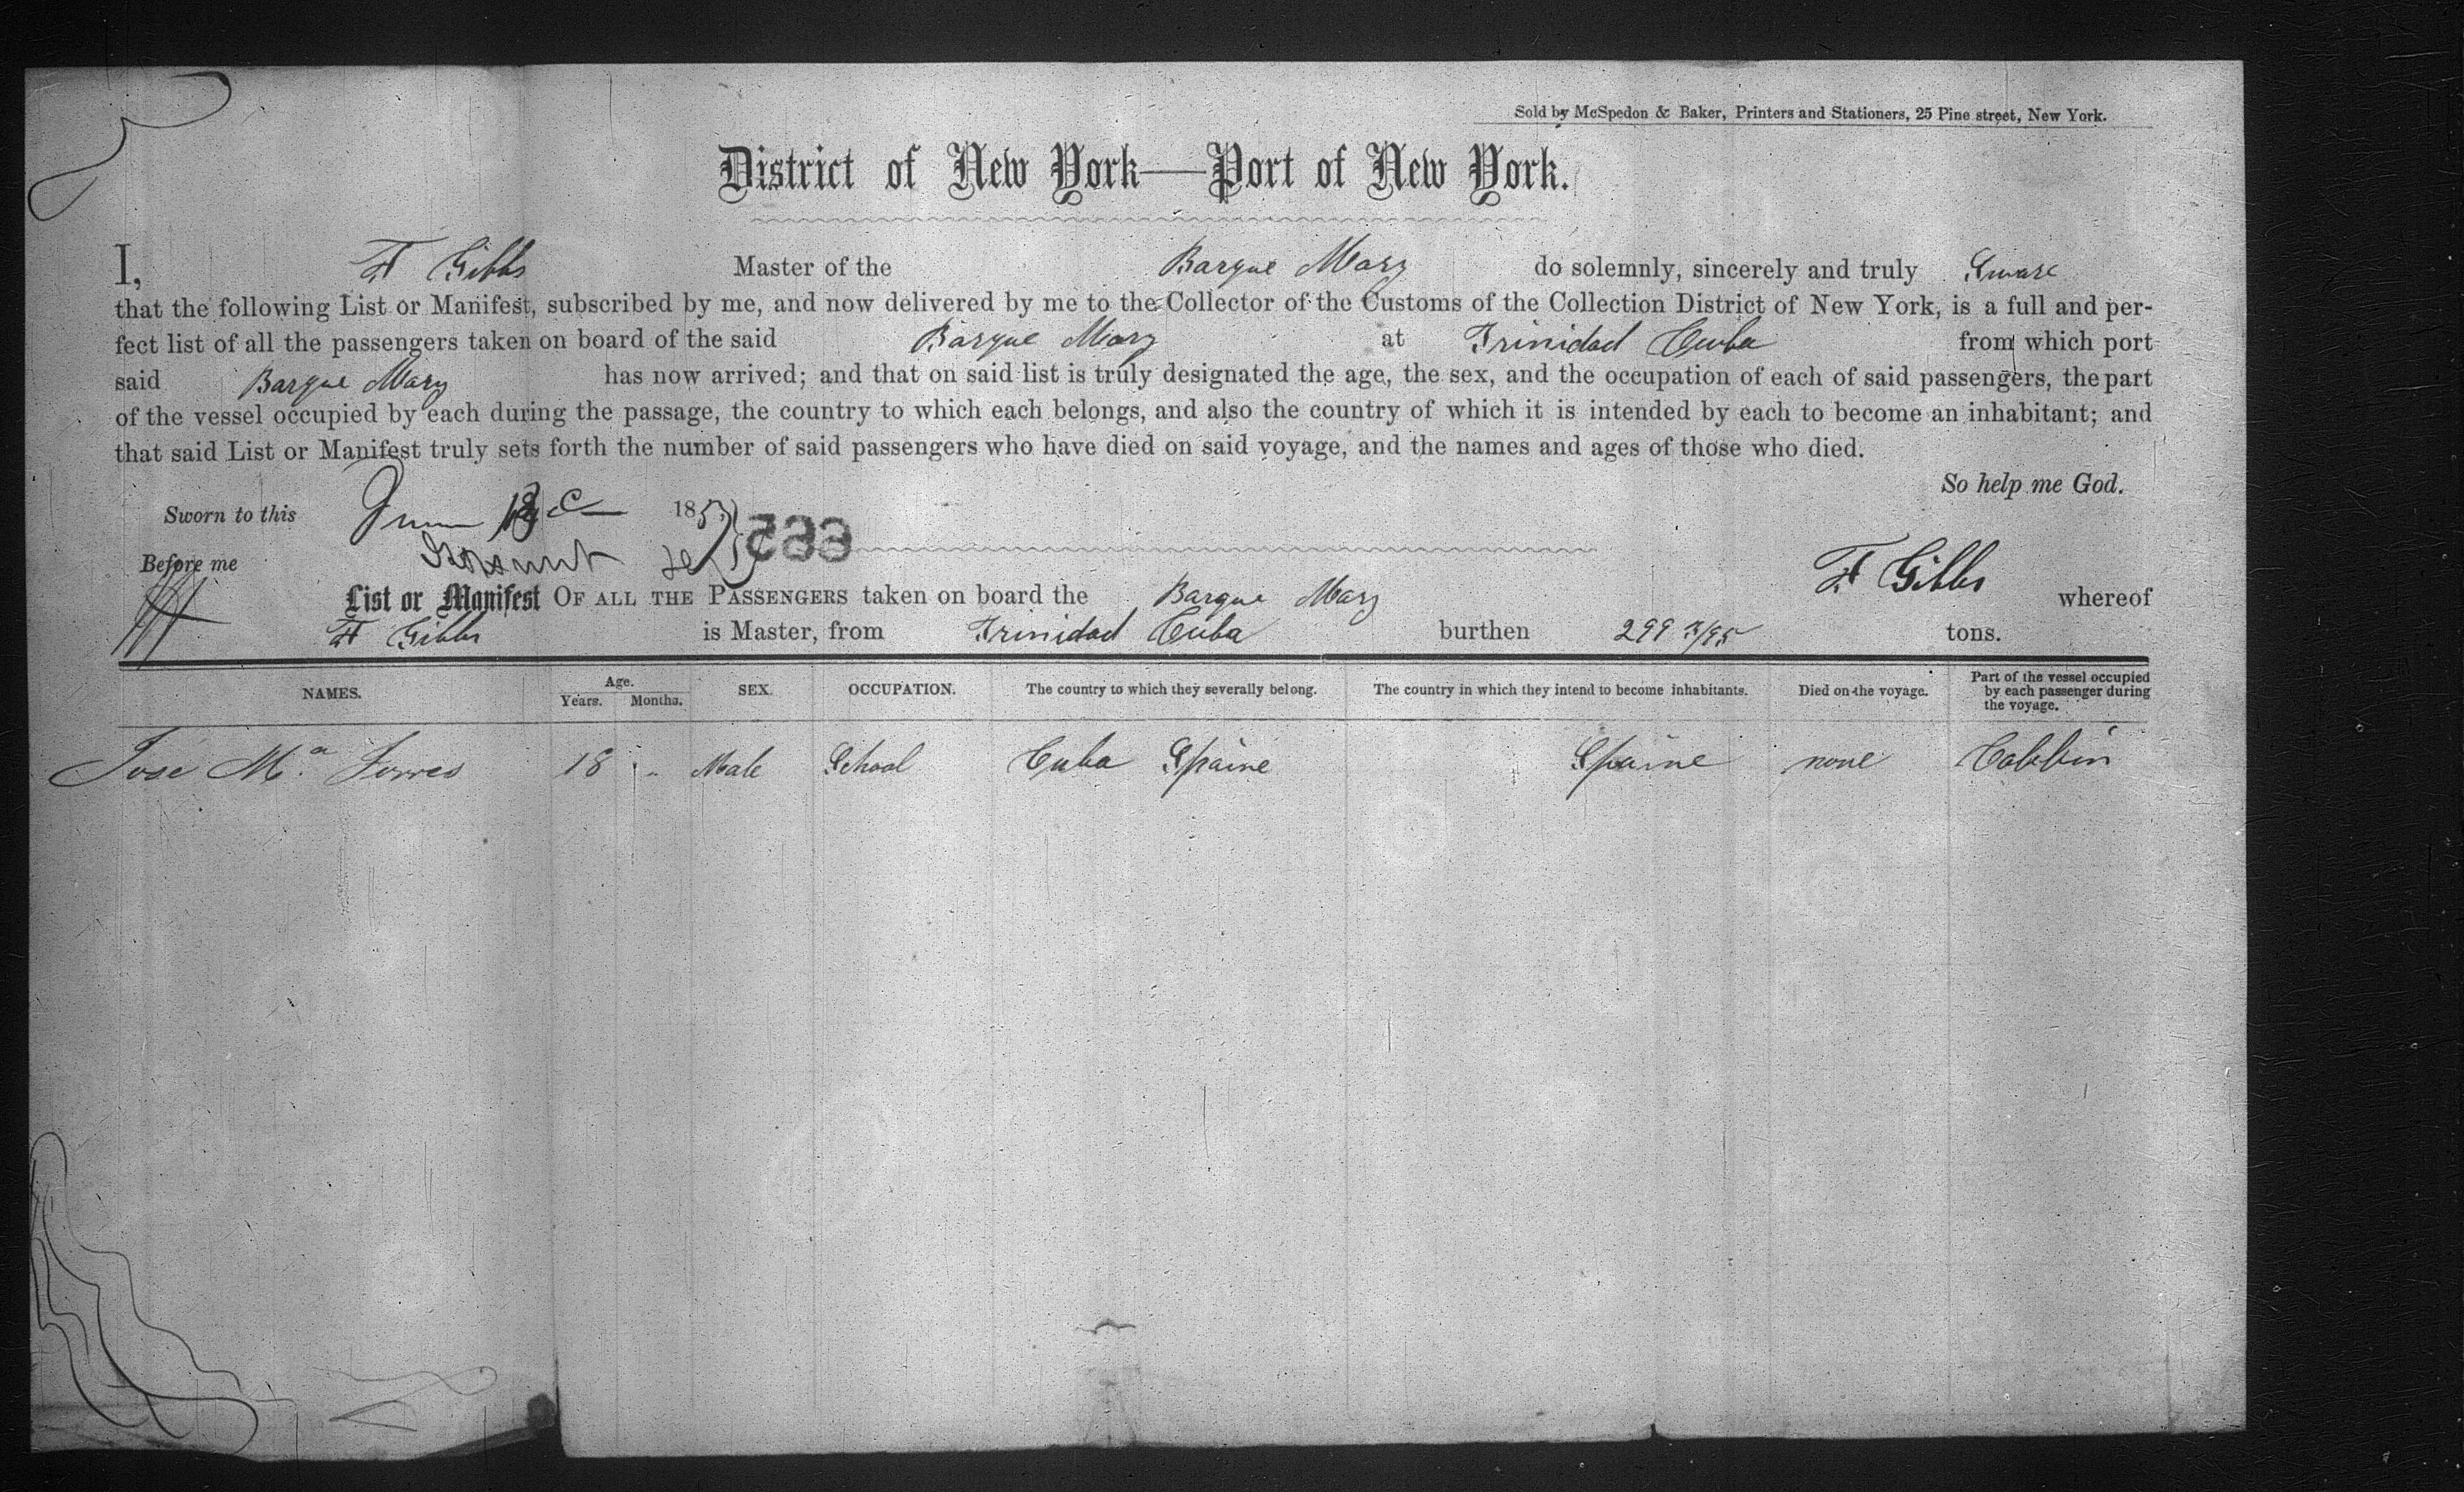 Sold by McSpedon & Baker, Printers and Stationers, 25 Pine street, New York.
District of New York—Port of New York.
I, H Gibbs Master of the Barque Mary do solemnly, sincerely and truly Sware
that the following List or Manifest, subscribed by me, and now delivered by me to the Collector of the Customs of the Collection District of New York, is a full and per-
fect list of all the passengers taken on board of the said Barque Mary at Trinidad Cuba from which port
said Barque Mary has now arrived; and that on said list is truly designated the age, the sex, and the occupation of each of said passengers, the part
of the vessel occupied by each during the passage, the country to which each belongs, and also the country of which it is intended by each to become an inhabitant; and
that said List or Manifest truly sets forth the number of said passengers who have died on said voyage, and the names and ages of those who died.
So help me God.
Sworn to this June 185
Before me H Gibbs
List or Manifest OF ALL THE PASSENGERS taken on board the Barque Mary whereof
H Gibbs is Master, from Trinidad Cuba burthen 299 tons.
NAMES. Age. Years. Months. SEX. OCCUPATION. The country to which they severally belong. The country in which they intend to become inhabitants. Died on the voyage. Part of the vessel occupied by each passenger during the voyage.
José M.ª Torres 18 " Male School Cuba Spaine Spaine none Cabbin